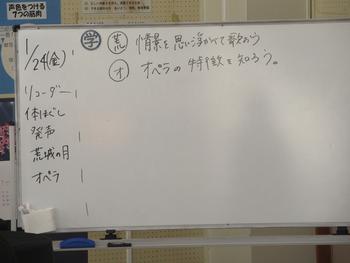 声色をつける
7つの筋肉
1/24(金)
学 荒 情景を思い浮かべて歌おう
オ オペラの特徴を知ろう。
リコーダー
体ほぐし
発声
荒城の月
オペラ